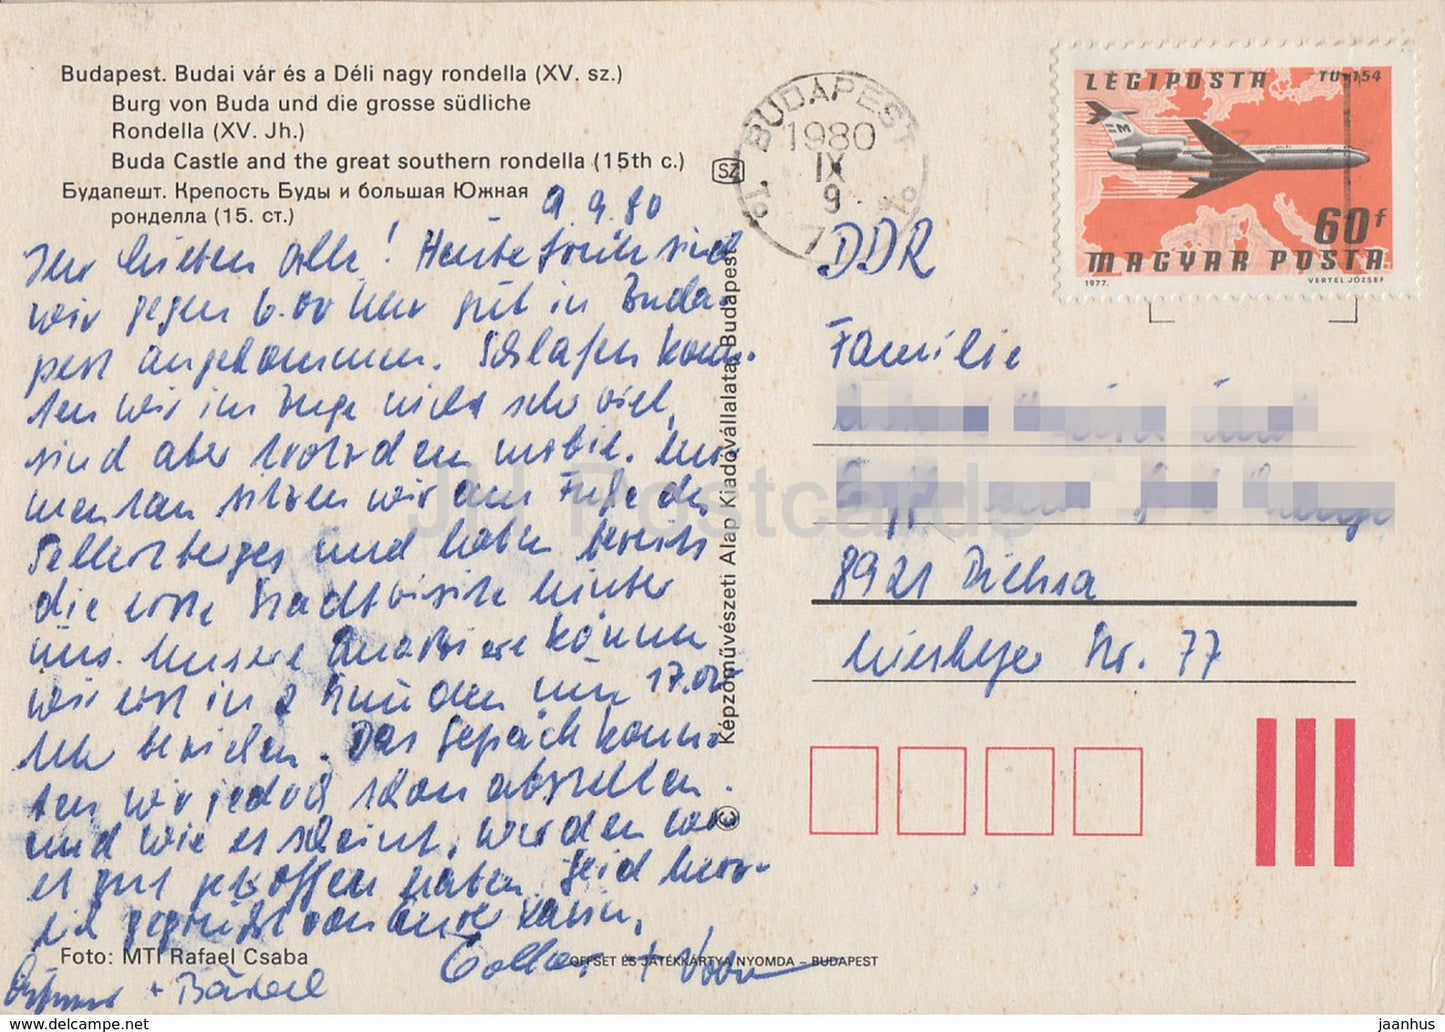 Budapest. Budai vár és a Déli nagy rondella (XV. sz.)
Burg von Buda und die grosse südliche
Rondella (XV. Jh.)
Buda Castle and the great southern rondella (15th c.)
Будапешт. Крепость Буды и большая Южная
ронделла (15. ст.)
9.9.80
Ihr lieben alle! Heute früh sind
wir gegen 6.00 Uhr gut in Buda-
pest angekommen. Schlafen konn-
ten wir im Zuge nicht sehr viel,
sind aber trotzdem mobil. Mo-
mentan sitzen wir am Fuße des
Gellertberges und haben bereits
die erste Stadtvisite hinter
uns. Unsere Quartiere können
wir erst in 2 Stunden um 17.00
Uhr beziehen. Das Gepäck konn-
ten wir jedoch schon abstellen.
und wie es scheint, werden wir
es gut getroffen haben. Seid herz-
lich gegrüßt von
+ Bärbel
Foto: MTI Rafael Csaba
OFFSET ÉS JÁTÉKKÁRTYA NYOMDA – BUDAPEST
© Képzőművészeti Alap Kiadóvállalata, Budapest
SZ
BUDAPEST
1980
IX
9
7
LÉGIPOSTA
TU-154
M
60f
MAGYAR POSTA
1977.
VERTEL JÓZSEF
DDR
Familie
8921 Diehsa
Nr. 77
JH Postcards
hippostcard.com
jaanhus